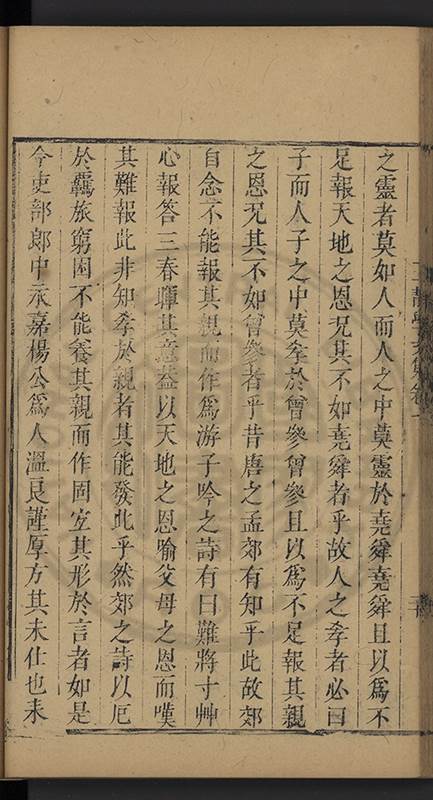 之靈者莫如人而人之中莫靈於堯舜堯舜且以爲不
足報天地之恩況其不如堯舜者乎故人之孝者必曰
子而人子之中莫孝於曾參曾參且以爲不足報其親
之恩況其不如曾參者乎昔唐之孟郊有知乎此故郊
自念不能報其親而作爲游子吟之詩有曰難將寸艸
心報答三春暉其意葢以天地之恩喻父母之恩而嘆
其難報此非知孝於親者其能發此乎然郊之詩以厄
於羈旅窮困不能養其親而作固宐其形於言者如是
今吏部郎中永嘉楊公爲人溫良謹厚方其未仕也未